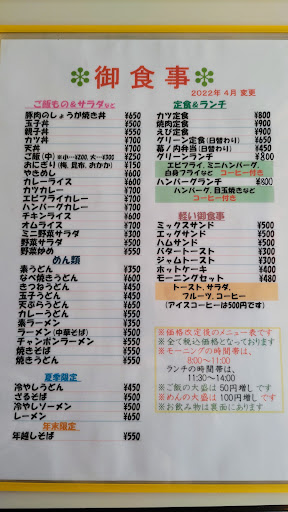 御食事
2022年 4月 変更
ご飯もの&サラダなど
豚肉のしょうが焼き丼 ¥650
玉子丼 ¥500
親子丼 ¥550
カツ丼 ¥650
天丼 ¥650
ご飯(中) ※小…¥200、大…¥300 ¥250
おにぎり(梅、昆布、おかか)
やきめし
カレーライス
カツカレー
エビフライカレー
ハンバーグカレー
チキンライス
オムライス
ミニ野菜サラダ
野菜サラダ
野菜炒め
めん類
素うどん
なべ焼きうどん
きつねうどん
玉子うどん
天ぷらうどん
カレーうどん
素ラーメン
ラーメン(中華そば) ¥500
チャンポンラーメン ¥550
焼きそば ¥550
焼きうどん ¥550
夏季限定
冷やしうどん ¥450
ざるそば ¥500
冷やしソーメン ¥500
レーメン ¥650
年末限定
年越しそば ¥550
定食&ランチ
カツ定食 ¥800
焼肉定食 ¥900
えび定食 ¥900
グリーン定食(日替わり) ¥650
幕ノ内弁当(日替わり) ¥650
グリーンランチ ¥800
エビフライ、ミニハンバーグ、
白身フライなど コーヒー付き
ハンバーグランチ ¥800
ハンバーグ、目玉焼きなど
コーヒー付き
軽い御食事
ミックスサンド ¥500
エッグサンド ¥500
ハムサンド ¥500
バタートースト ¥300
ジャムトースト ¥300
ホットケーキ ¥400
モーニングセット ¥480
トースト、サラダ、
フルーツ、コーヒー
(アイスコーヒーは500円です)
※価格改定後のメニュー表です
※全て税込価格となっております
※モーニングの時間帯は、
8:00〜11:00
ランチの時間帯は、
11:30〜14:00
※ご飯の大盛は 50円増し です
※めんの大盛は 100円増し です
※お飲み物は裏面にあります